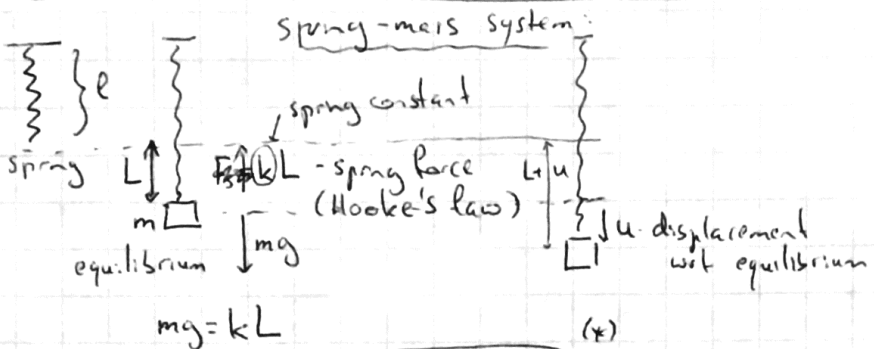 spring-mass system:
l
spring constant
spring
L
kL - spring force
(Hooke's law)
L+u
m
mg
u - displacement
wrt equilibrium
equilibrium
mg = kL
(*)